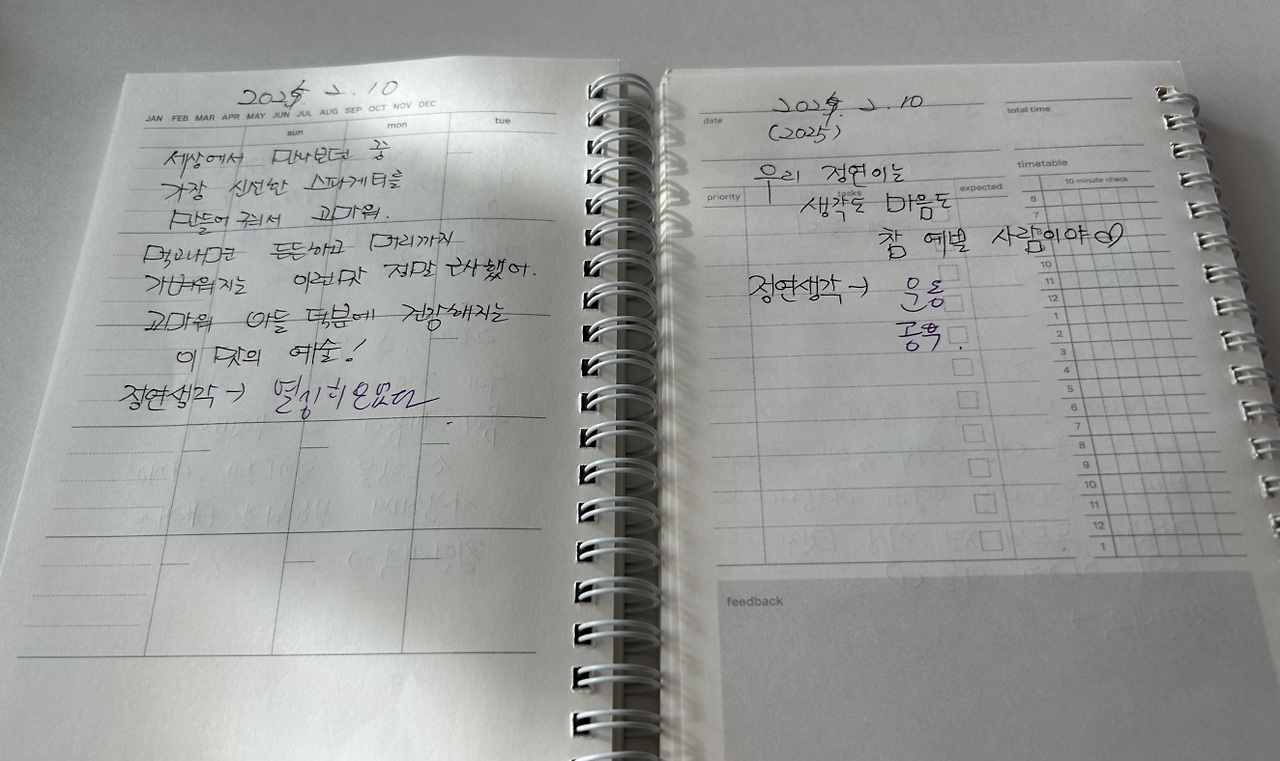 2025. 2. 10
JAN FEB MAR APR MAY JUN JUL AUG SEP OCT NOV DEC
sun mon tue
세상에서 만나보던 중
가장 신선한 스파게티를
만들어 줘서 고마워.
먹고나면 든든하고 머리까지
가벼워지는 이런맛 정말 근사했어.
고마워 아들 덕분에 건강해지는
이 맛의 예술!
정연생각→
date 2025. 2. 10 total time
(2025)
우리 정연이는
timetable
priority tasks expected 10 minute check
생각도 마음도
참 예쁜 사람이야♡
정연생각→ 운동
공부.
6
7
8
9
10
11
12
1
2
3
4
5
6
7
8
9
10
11
12
1
feedback